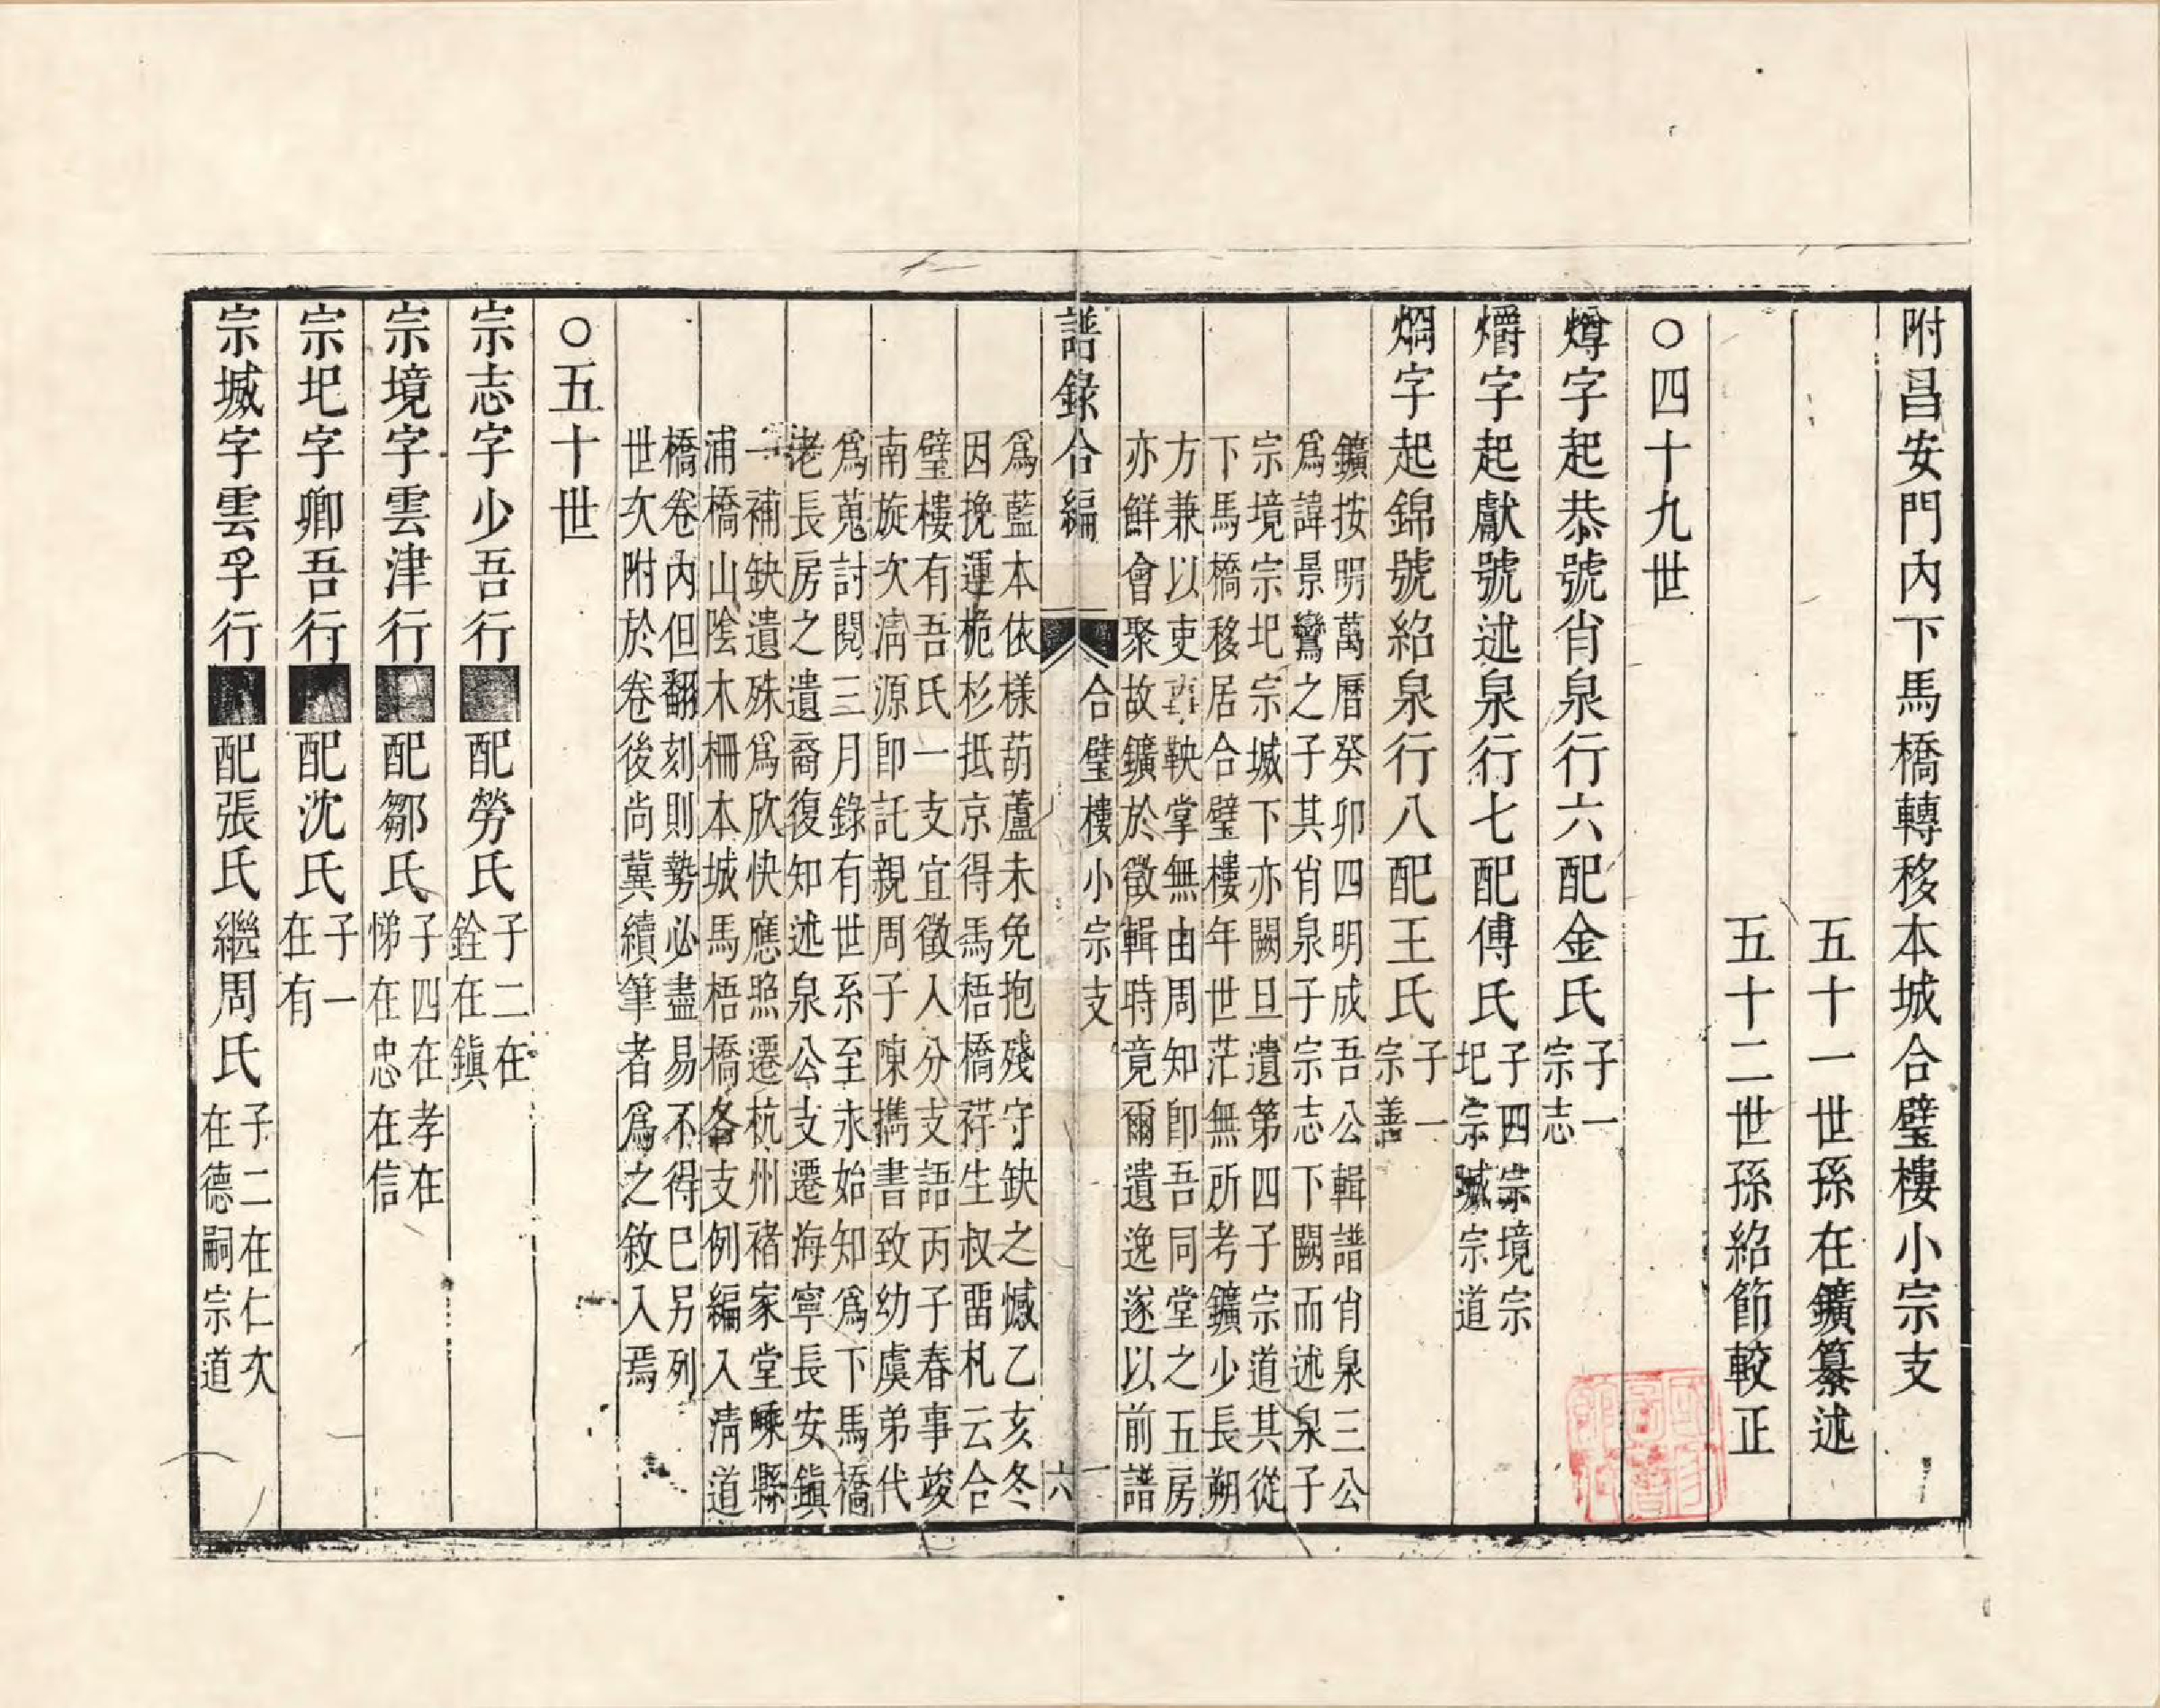 附昌安門内下馬橋轉移本城合璧樓小宗支
五十一世孫在鑛纂述
五十二世孫紹節較正
○四十九世
燇字起恭號肖泉行六配金氏子一
宗志
爝字起獻號述泉行七配傅氏子四宗境宗
圯宗堿宗道
焵字起錦號紹泉行八配王氏子一
宗善
鑛按明萬曆癸卯四明成吾公輯譜肖泉三公
爲諱景鸞之子其肖泉子宗志下闕而述泉子
宗境宗圯宗堿下亦闕且遺第四子宗道其從
下馬橋移居合璧樓年世茫無所考鑛少長朔
方兼以吏鞅掌無由周知即吾同堂之五房
亦鮮會聚故鑛於徵輯時竟爾遺逸遂以前譜
譜錄合編
合璧樓小宗支
六
爲藍本依樣葫蘆未免抱殘守缺之憾乙亥冬
因挽運桅杉抵京得馬梧橋荐生叔畱札云合
璧樓有吾氏一支宜徵入分支語丙子春事竣
南旋次淸源即託親周子陳攜書致幼虞弟代
爲蒐討閱三月錄有世系至永始知爲下馬橋
老長房之遺裔復知述泉公支遷海寧長安鎭
一補缺遺殊爲欣快應照遷杭州褚家堂嵊縣
浦橋山陰木柵本城馬梧橋各支例編入淸道
橋卷内但翻刻則勢必盡易不得已另列
世次附於卷後尚冀續筆者爲之敘入焉
○五十世
宗志字少吾行配勞氏子二在
銓在鎭
宗境字雲津行配鄒氏子四在孝在
悌在忠在信
宗圯字卿吾行配沈氏子一
在有
宗堿字雲孚行配張氏繼周氏子二在仁次
在德嗣宗道